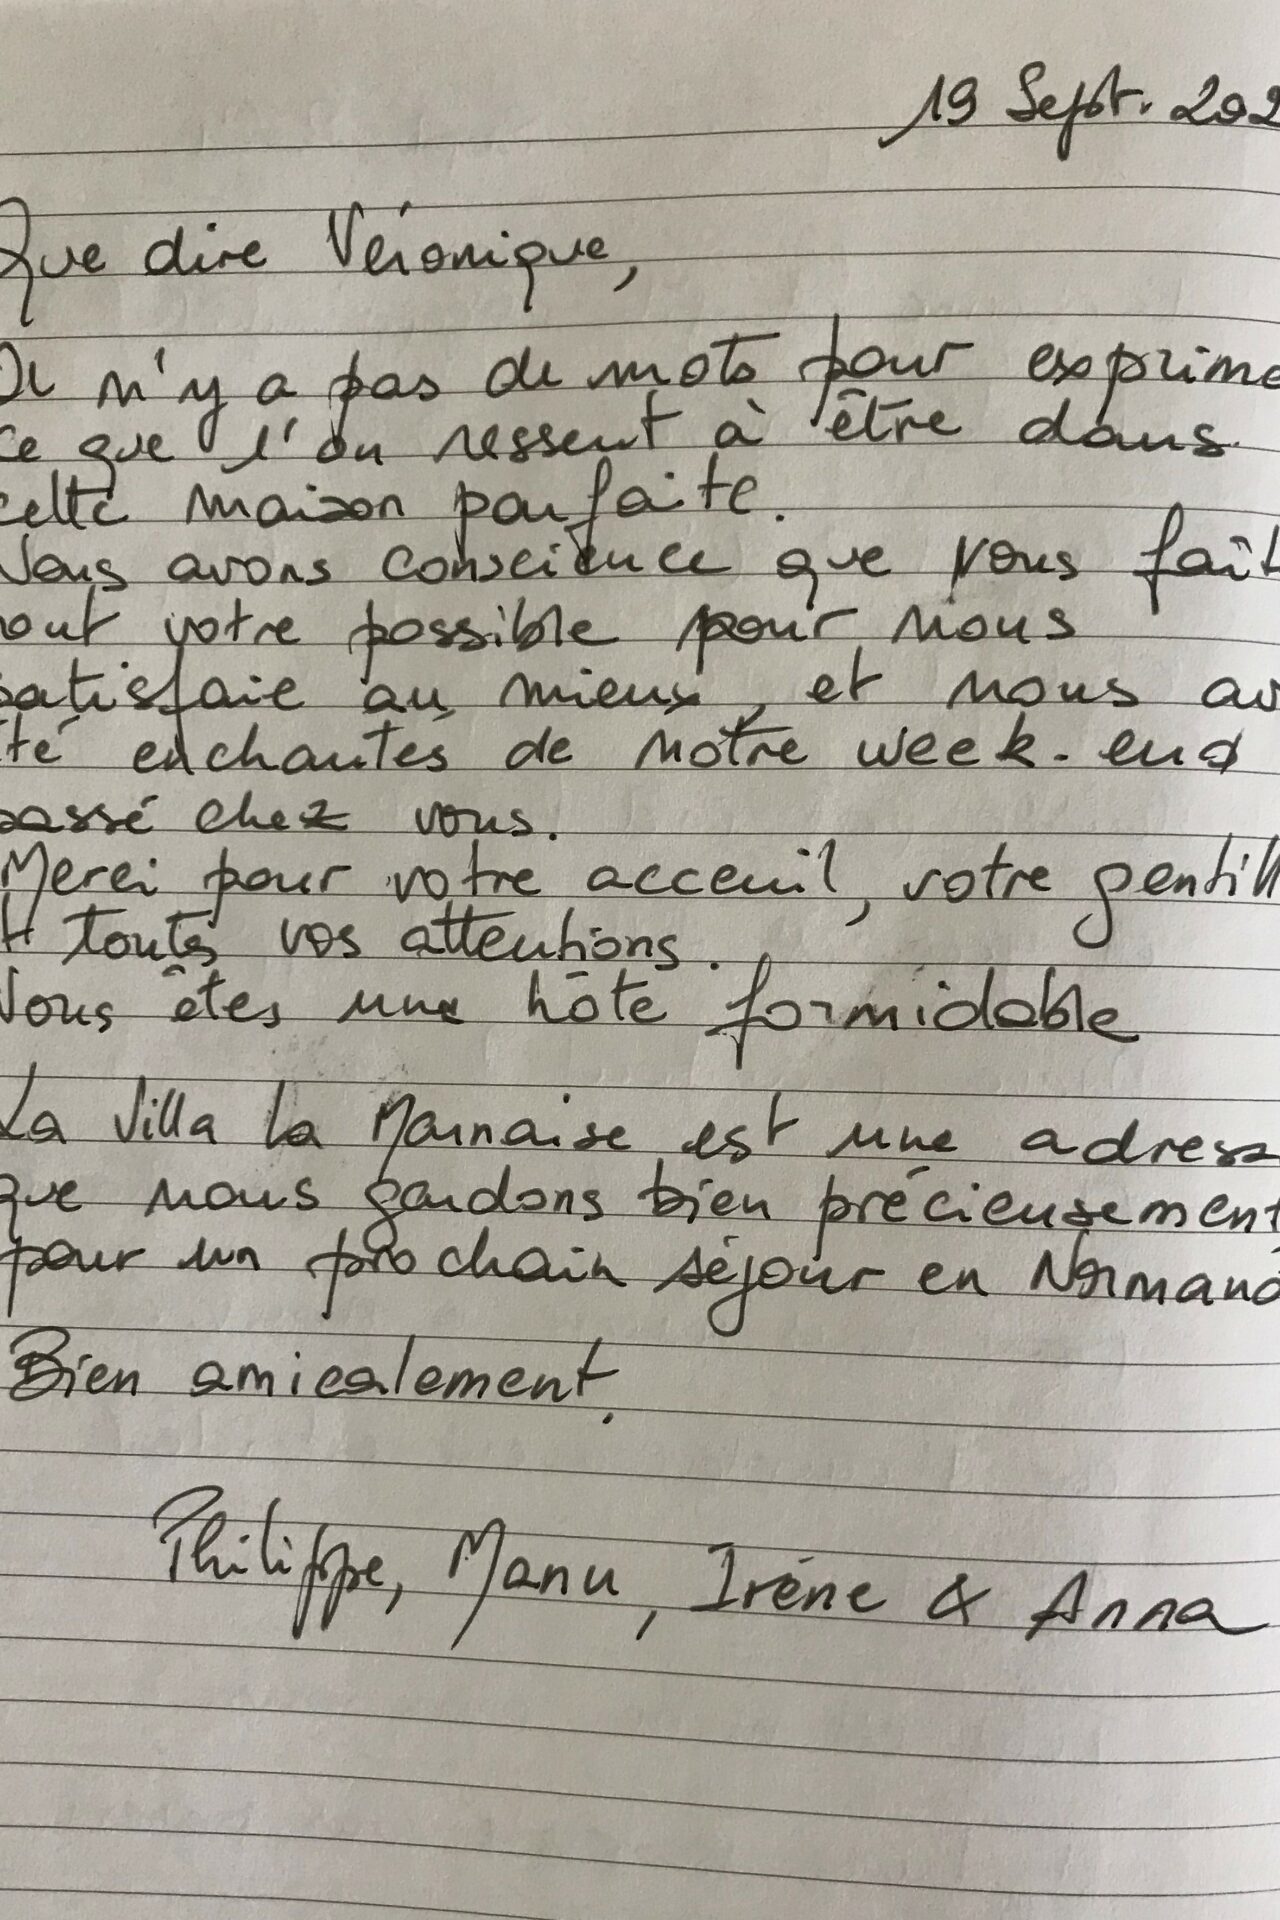 19 Sept. 202
Que dire Véronique,
Il n'y a pas de mots pour exprime
ce que l'on ressent à être dans
cette maison parfaite.
Nous avons conscience que vous fait
out votre possible pour nous
satisfaie au mieux, et nous av
té enchantés de notre week-end
passé chez vous.
Merci pour votre acceuil, votre gentill
t toutes vos attentions.
Vous êtes une hôte formidable
La Villa la Marnaise est une adress
que nous gardons bien précieusement
pour un prochain séjour en Normand
Bien amicalement.
Philippe, Manu, Irène & Anna